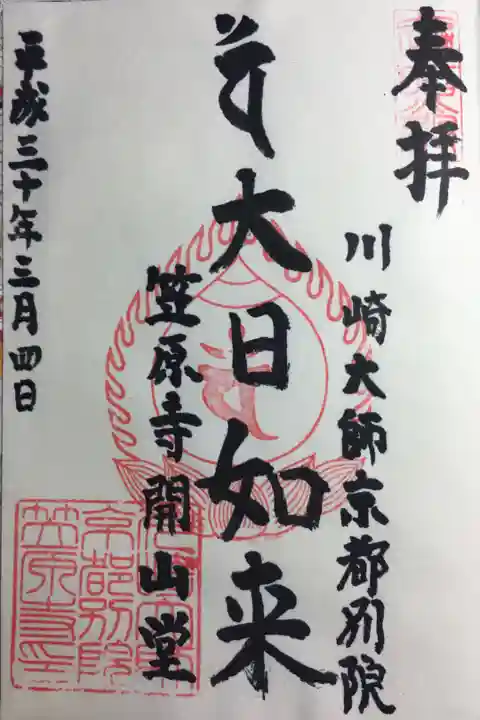 奉拝
川崎大師京都別院
大日如来
笠原寺開山堂
平成三十年三月四日
京都別院
笠原寺印